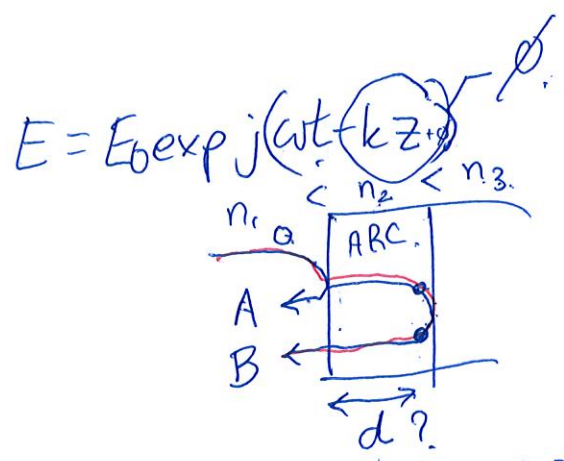 ϕ.
E = E₀ exp j(ωt - kz + ϕ)
n₁ < n₂ < n₃.
ARC.
A
B
d ?